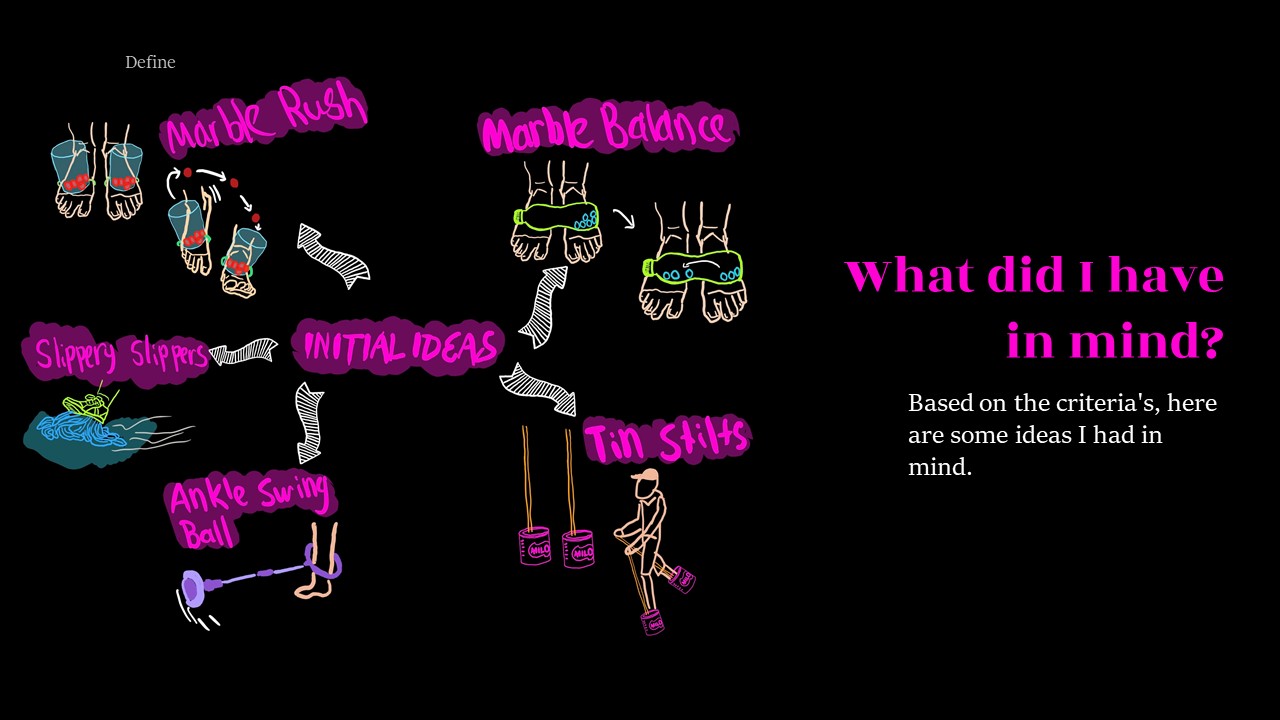 Define
Marble Rush
Marble Balance
Slippery Slippers
INITIAL IDEAS
Tin Stilts
Ankle Swing
Ball
MILO
MILO
MILO
MILO
What did I have
in mind?
Based on the criteria's, here
are some ideas I had in
mind.